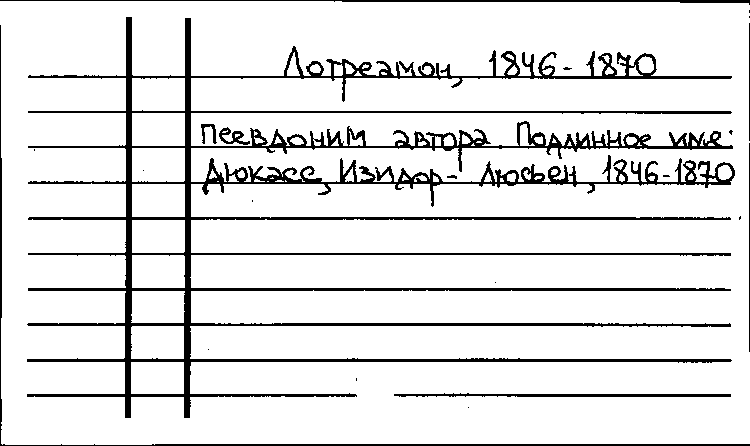 Лотреамон, 1846-1870
Псевдоним автора. Подлинное имя:
Дюкасс, Изидор-Люсьен, 1846-1870